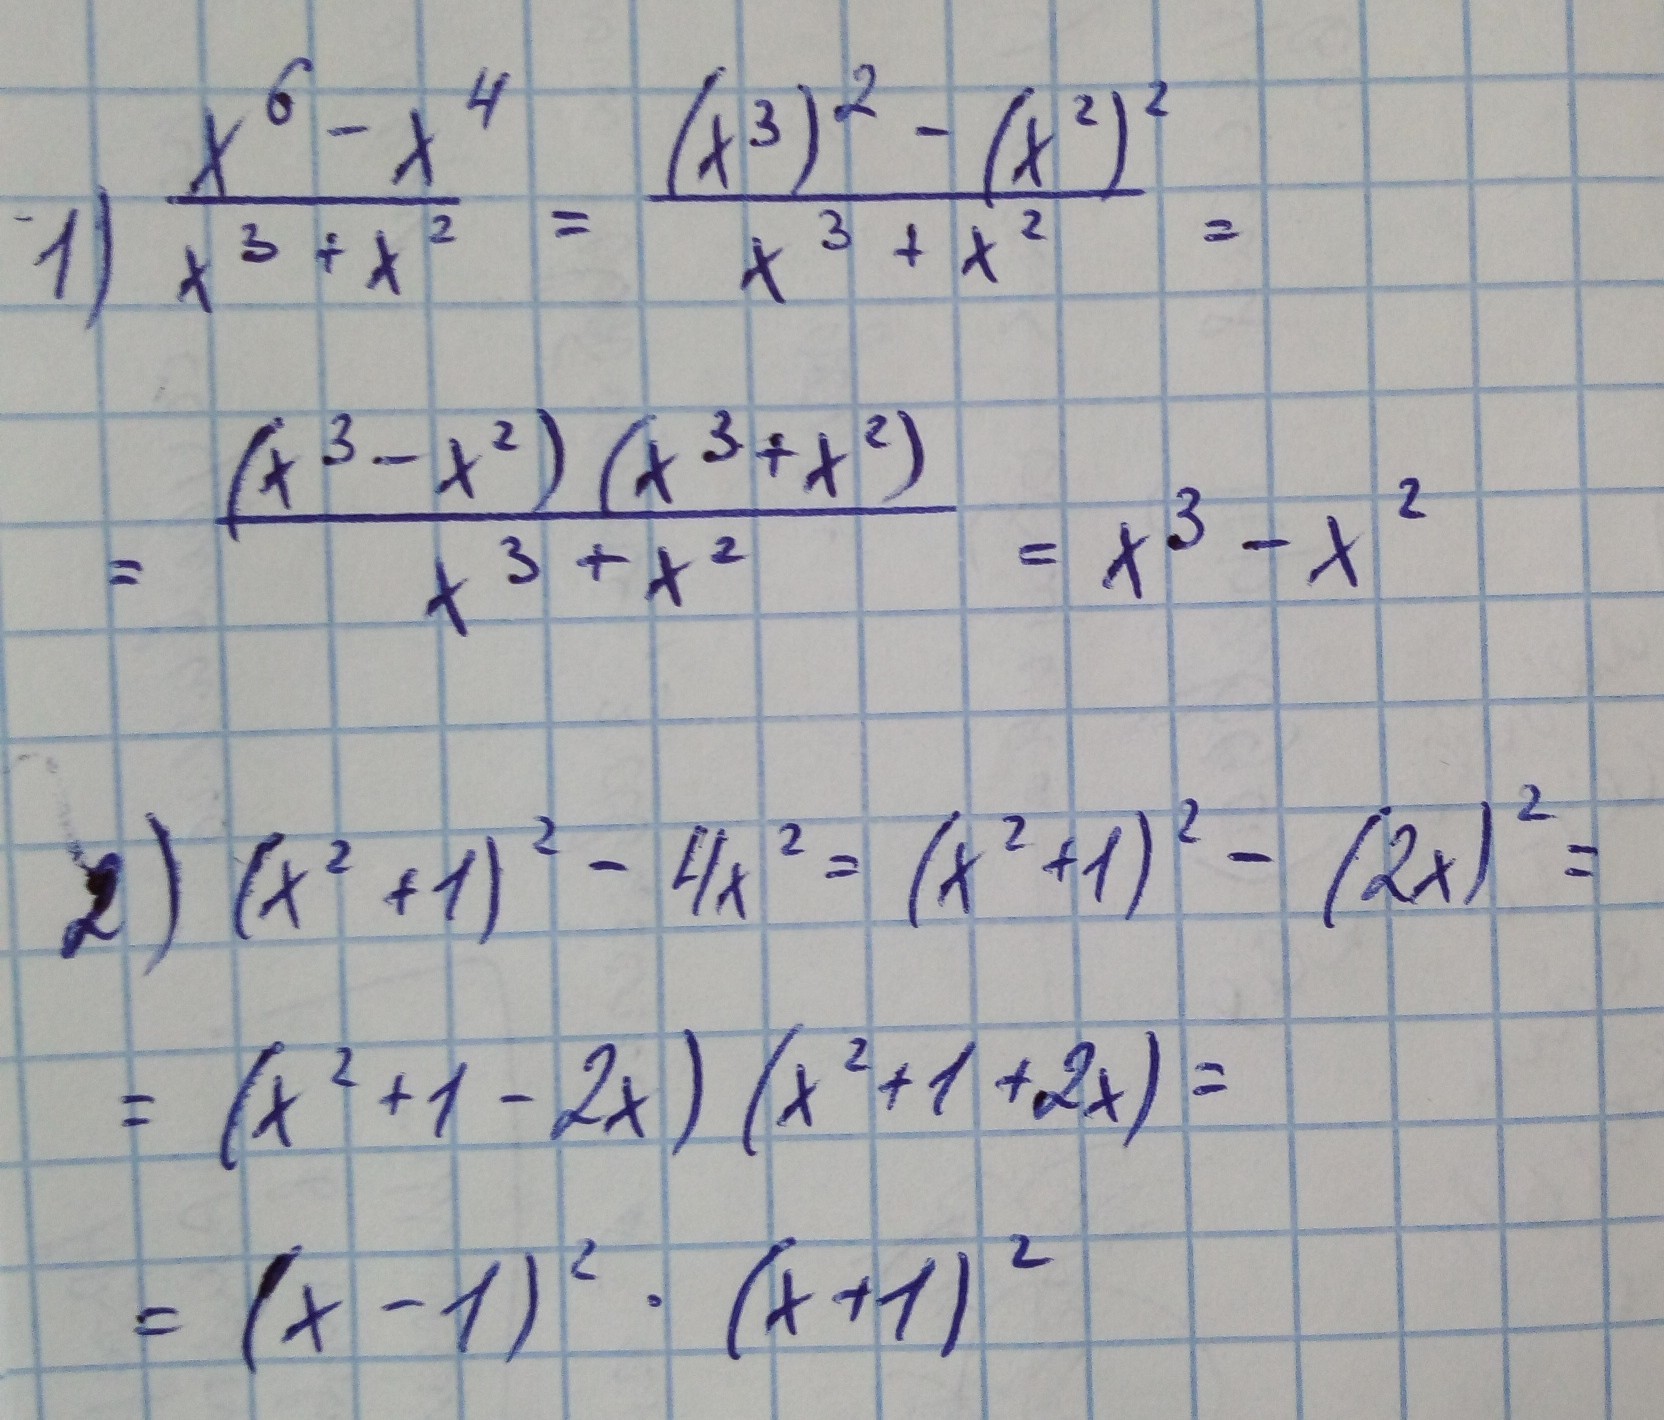 1) (x⁶ - x⁴)/(x³ + x²) = ((x³)² - (x²)²)/(x³ + x²) =
= ((x³ - x²)(x³ + x²))/(x³ + x²) = x³ - x²
2) (x² + 1)² - 4x² = (x² + 1)² - (2x)² =
= (x² + 1 - 2x)(x² + 1 + 2x) =
= (x - 1)² · (x + 1)²